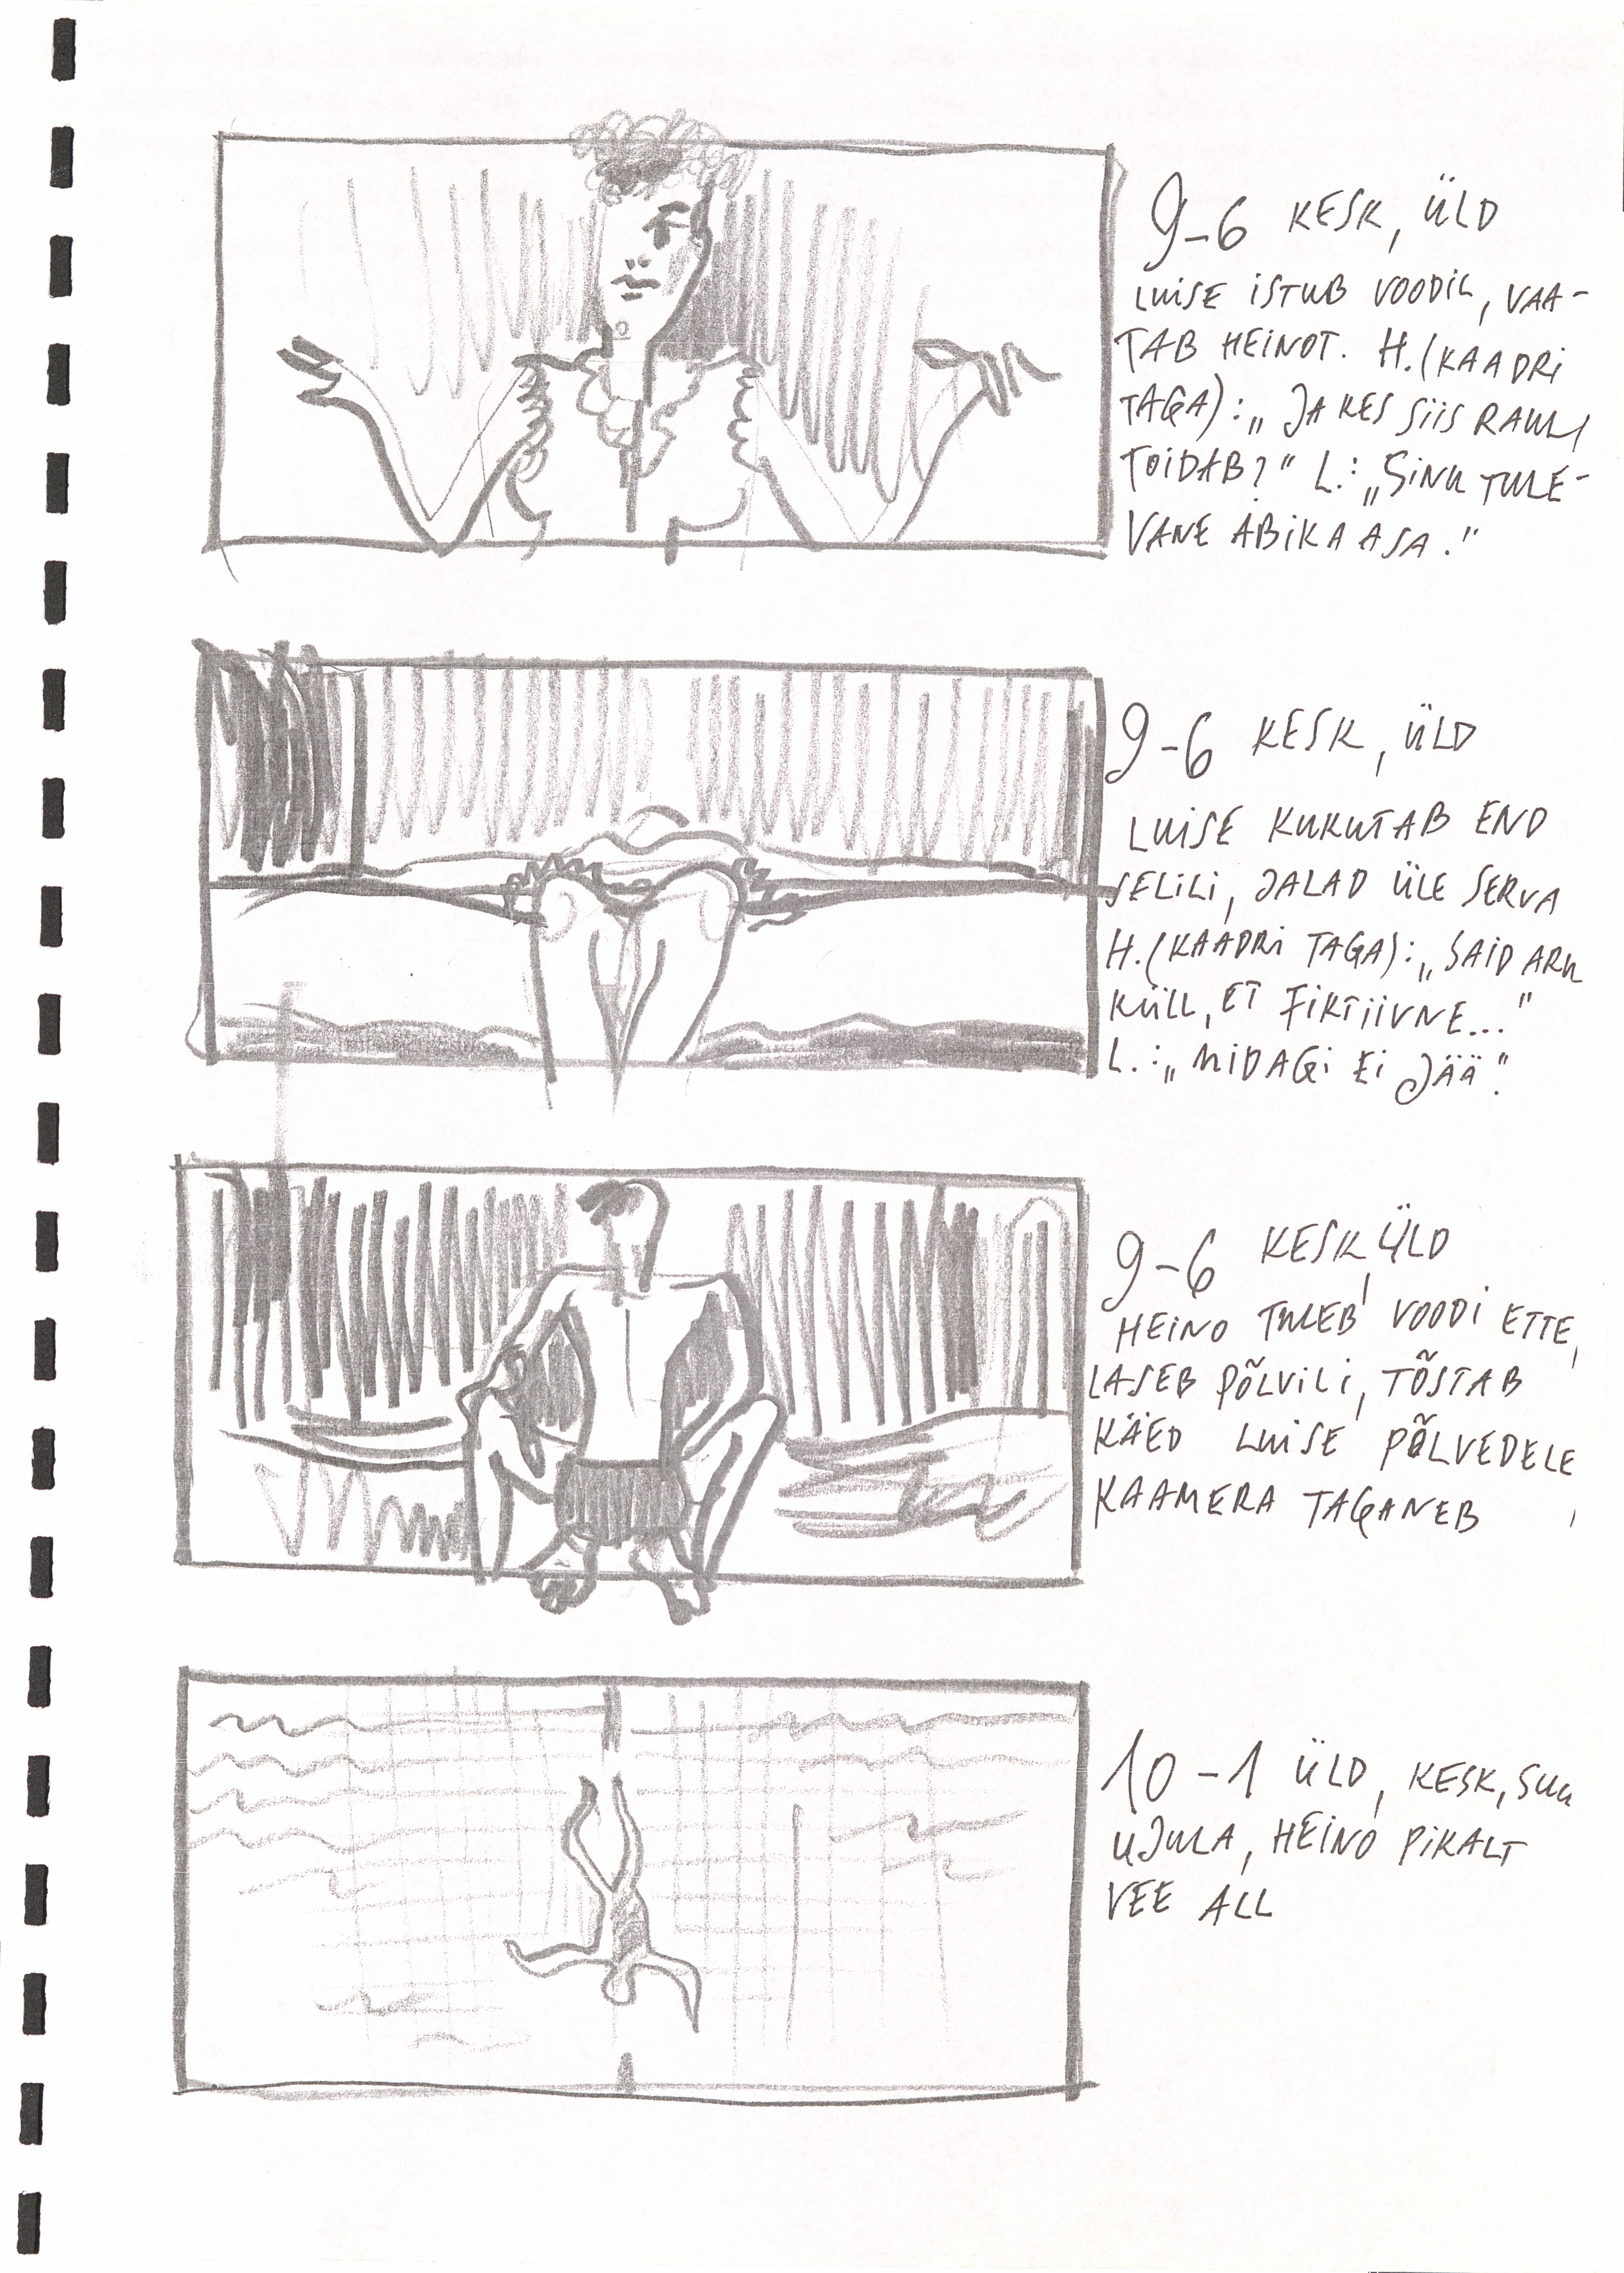 9-6 KESK, ÜLD
LUISE ISTUB VOODIL, VAA-
TAB HEINOT. H.(KAADRI
TAGA): „JA KES SIIS RAULI
TOIDAB?" L.: „SINU TULE-
VANE ABIKAASA."
9-6 KESK, ÜLD
LUISE KUKUTAB END
SELILI, JALAD ÜLE SERVA
H.(KAADRI TAGA): „SAID ARU
KÜLL, ET FIKTIIVNE..."
L.: „MIDAGI EI JÄÄ".
9-6 KESK, ÜLD
HEINO TULEB VOODI ETTE,
LASEB PÕLVILI, TÕSTAB
KÄED LUISE PÕLVEDELE,
KAAMERA TAGANEB
10-1 ÜLD, KESK, SUU
UJULA, HEINO PIKALT
VEE ALL